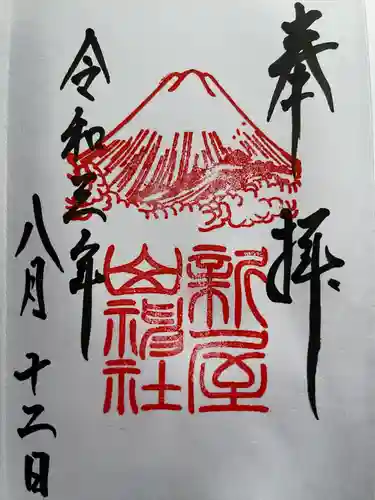 奉拝
新屋
山神社
令和三年
八月十二日